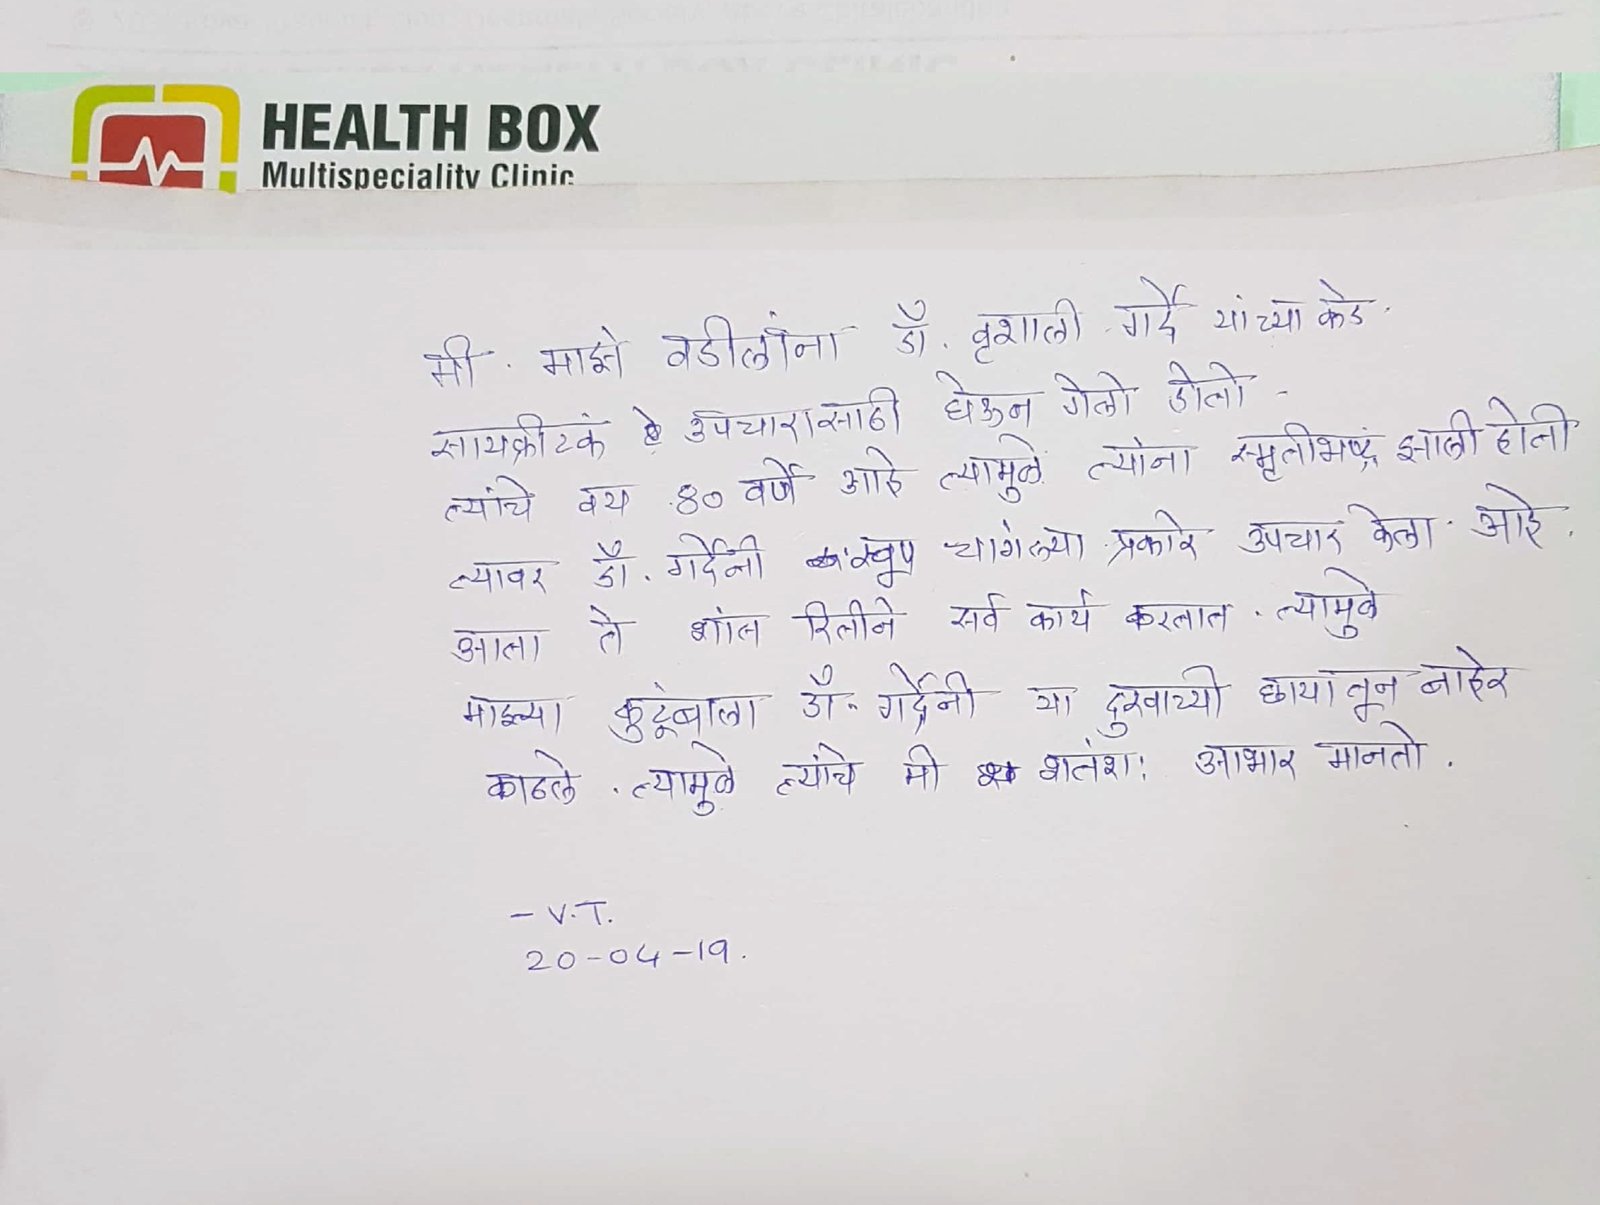 HEALTH BOX
Multispeciality Clinic
मी. माझे वडीलांना डॉ. वृशाली गर्दे यांच्या कडे.
सायक्रीटकं उपचारासाठी घेऊन गेलो होतो -
त्यांचे वय 80 वर्षे आहे त्यामुळे त्यांना स्मृतीभष्ट्रं झाली होती
त्यावर डॉ. गर्देनी खूप चागंल्या प्रकारे उपचार केला आहे.
आता ते शांत रितीने सर्व कार्य करतात. त्यामुळे
माझ्या कुटूंबाला डॉ. गर्देनी या दुखाच्यी छायातून बाहेर
काढले. त्यामुळे त्यांचे मी शतंशः आभार मानतो.
- V.T.
20-04-19.